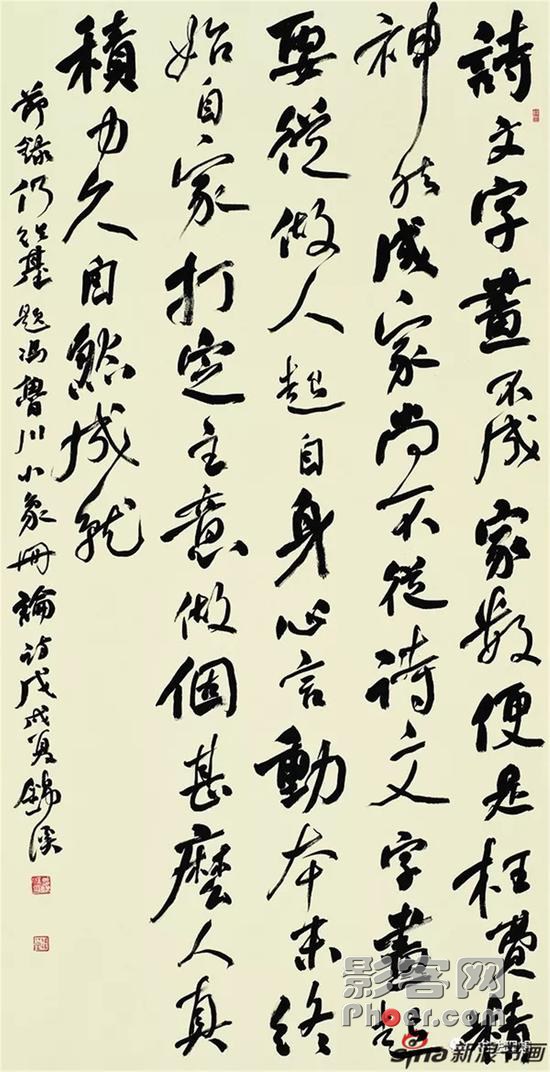 詩文字畫不成家數便是枉費精
神然成家尚不從詩文字畫起
要從做人起自身心言動本末終
始自家打定主意做個甚麼人真
積力久自然成就
節錄何紹基題馮魯川小象冊論詩戊戌夏錦溪
影客网
Phoer.com
sina新浪书画